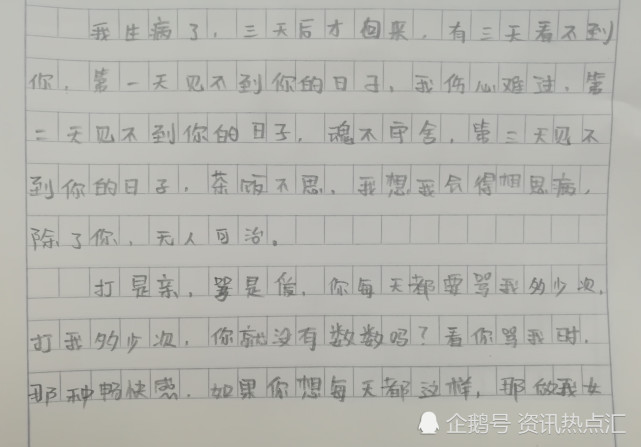 我生病了，三天后才回来，有三天看不到
你，第一天见不到你的日子，我伤心难过，第
二天见不到你的日子，魂不守舍，第三天见不
到你的日子，茶饭不思，我想我会得相思病，
除了你，无人可治。
打是亲，骂是爱，你每天都要骂我多少次，
打我多少次，你就没有数数吗？看你骂我时，
那种畅快感，如果你想每天都这样，那做我女
企鹅号 资讯热点汇